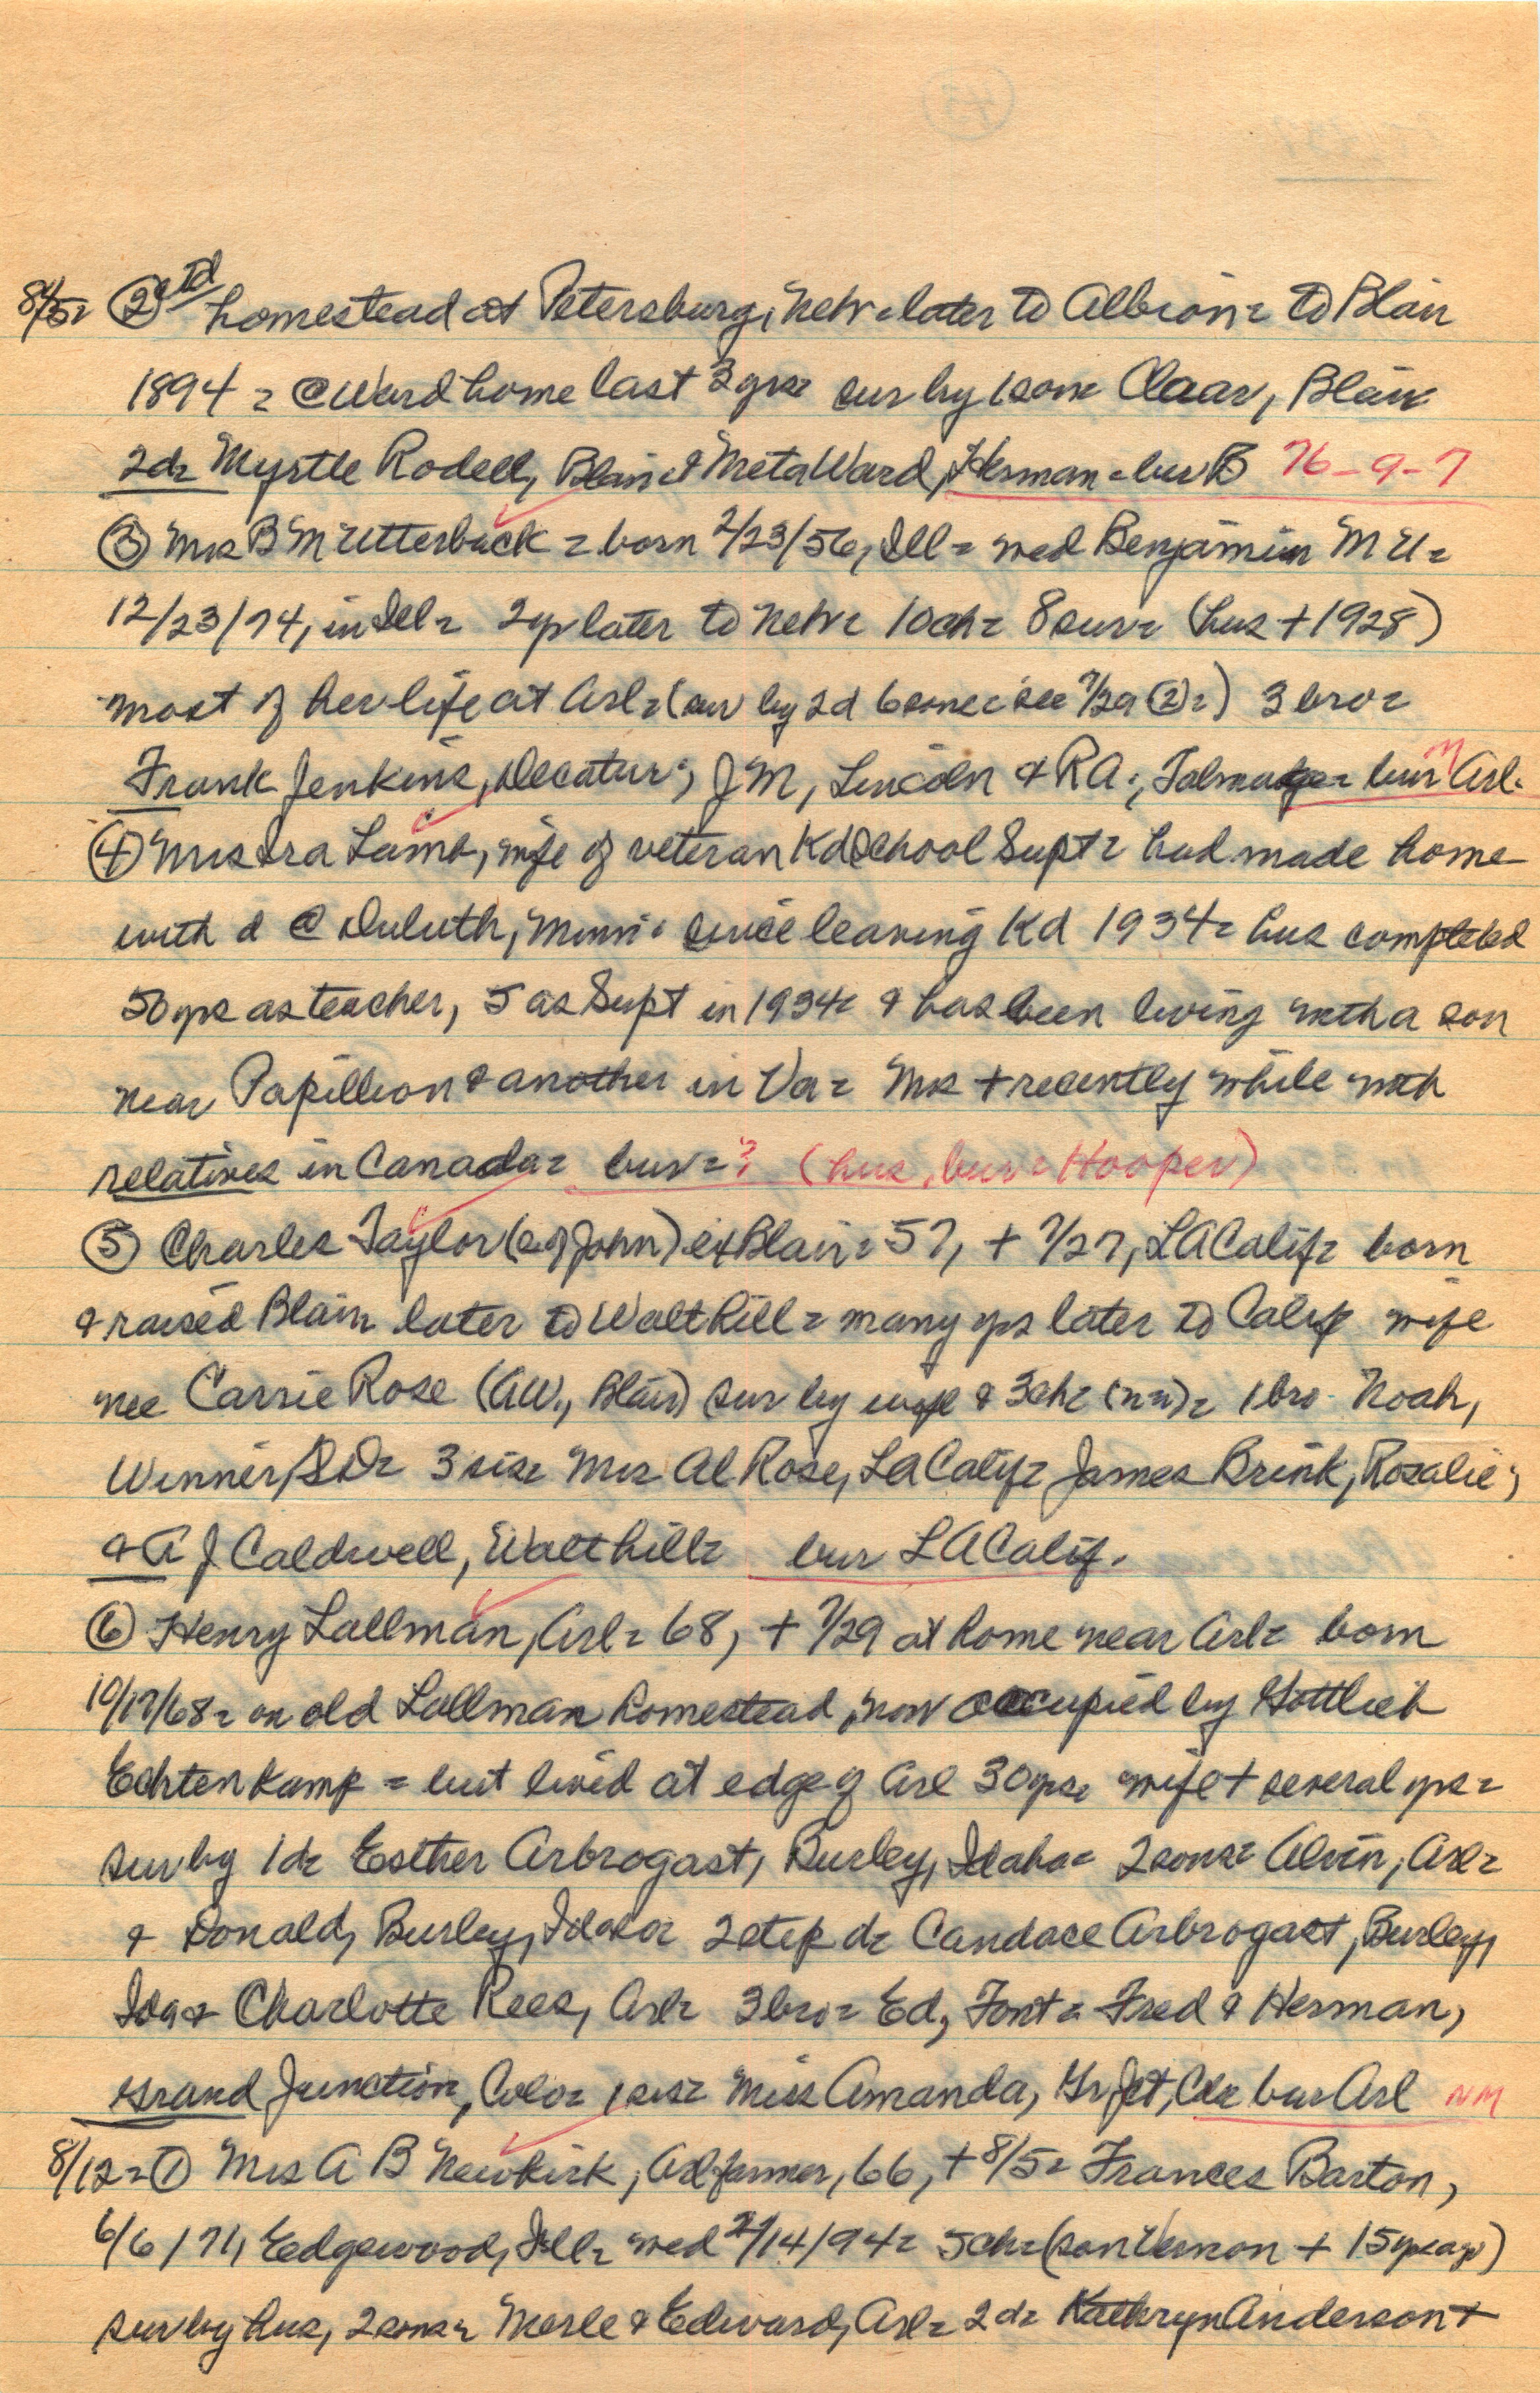 8/5= ② ctd homestead at Petersburg, Nebr = later to Albion = to Blair
1894 = @ Ward home last 3 yrs = sur by 1 son = Claar, Blair
2d = Myrtle Rodell, Blair & Meta Ward, Herman = bur B 76-9-7
③ Mrs B M Utterback = born 2/23/56, Ill = wed Benjamin M U =
12/23/74, in Ill = 2 yr later to Nebr = 10 ch = 8 sur = (hus + 1928)
most of her life at Arl = (sur by 2d 6 sons = see 7/29 ② =) 3 bro =
Frank Jenkins, Decatur; J M, Lincoln & R A; Talmadge = bur Arl.
④ Mrs Ira Lamb, wife of veteran Kd School Supt = had made home
with d @ Duluth, Minn = since leaving Kd 1934 = hus completed
50 yrs as teacher, 5 as Supt in 1934 = & has been living with a son
near Papillion & another in Va = Mrs + recently while with
relatives in Canada = bur = ? (hus, bur = Hooper)
⑤ Charles Taylor (s of John) ex Blair = 57, + 7/27, LA Calif = born
& raised Blair later to Walthill = many yrs later to Calif wife
nee Carrie Rose (AW., Blair) sur by wife & 3 ch = (nn) = 1 bro - Noah,
Winner, SD = 3 sis = Mrs Al Rose, LA Calif = James Brink, Rosalie;
& A J Caldwell, Walthill = bur LA Calif.
⑥ Henry Lallman, Arl = 68, + 7/29 at home near Arl = born
10/17/68 = on old Lallman homestead, now occupied by Gottlieb
Echtenkamp = but lived at edge of Arl 30 yrs = wife + several yrs =
sur by 1 d = Esther Arbrogast, Burley, Idaho = 2 sons = Alvin, Arl =
& Donald, Burley, Idaho = 2 step d = Candace Arbrogast, Burley,
Ida & Charlotte Rees, Arl = 3 bro = Ed, Font = Fred & Herman,
Grand Junction, Colo = 1 sis = Miss Amanda, Gr Jct, Clr bur Arl NM
8/12 = ① Mrs A B Newkirk, Arl farmer, 66, + 8/5 = Frances Barton,
6/6/71, Edgewood, Ill = wed 2/14/94 = 5 ch = (son Vernon + 15 yrs ago)
sur by hus, 2 sons = Merle & Edward, Arl = 2 d = Kathryn Anderson +